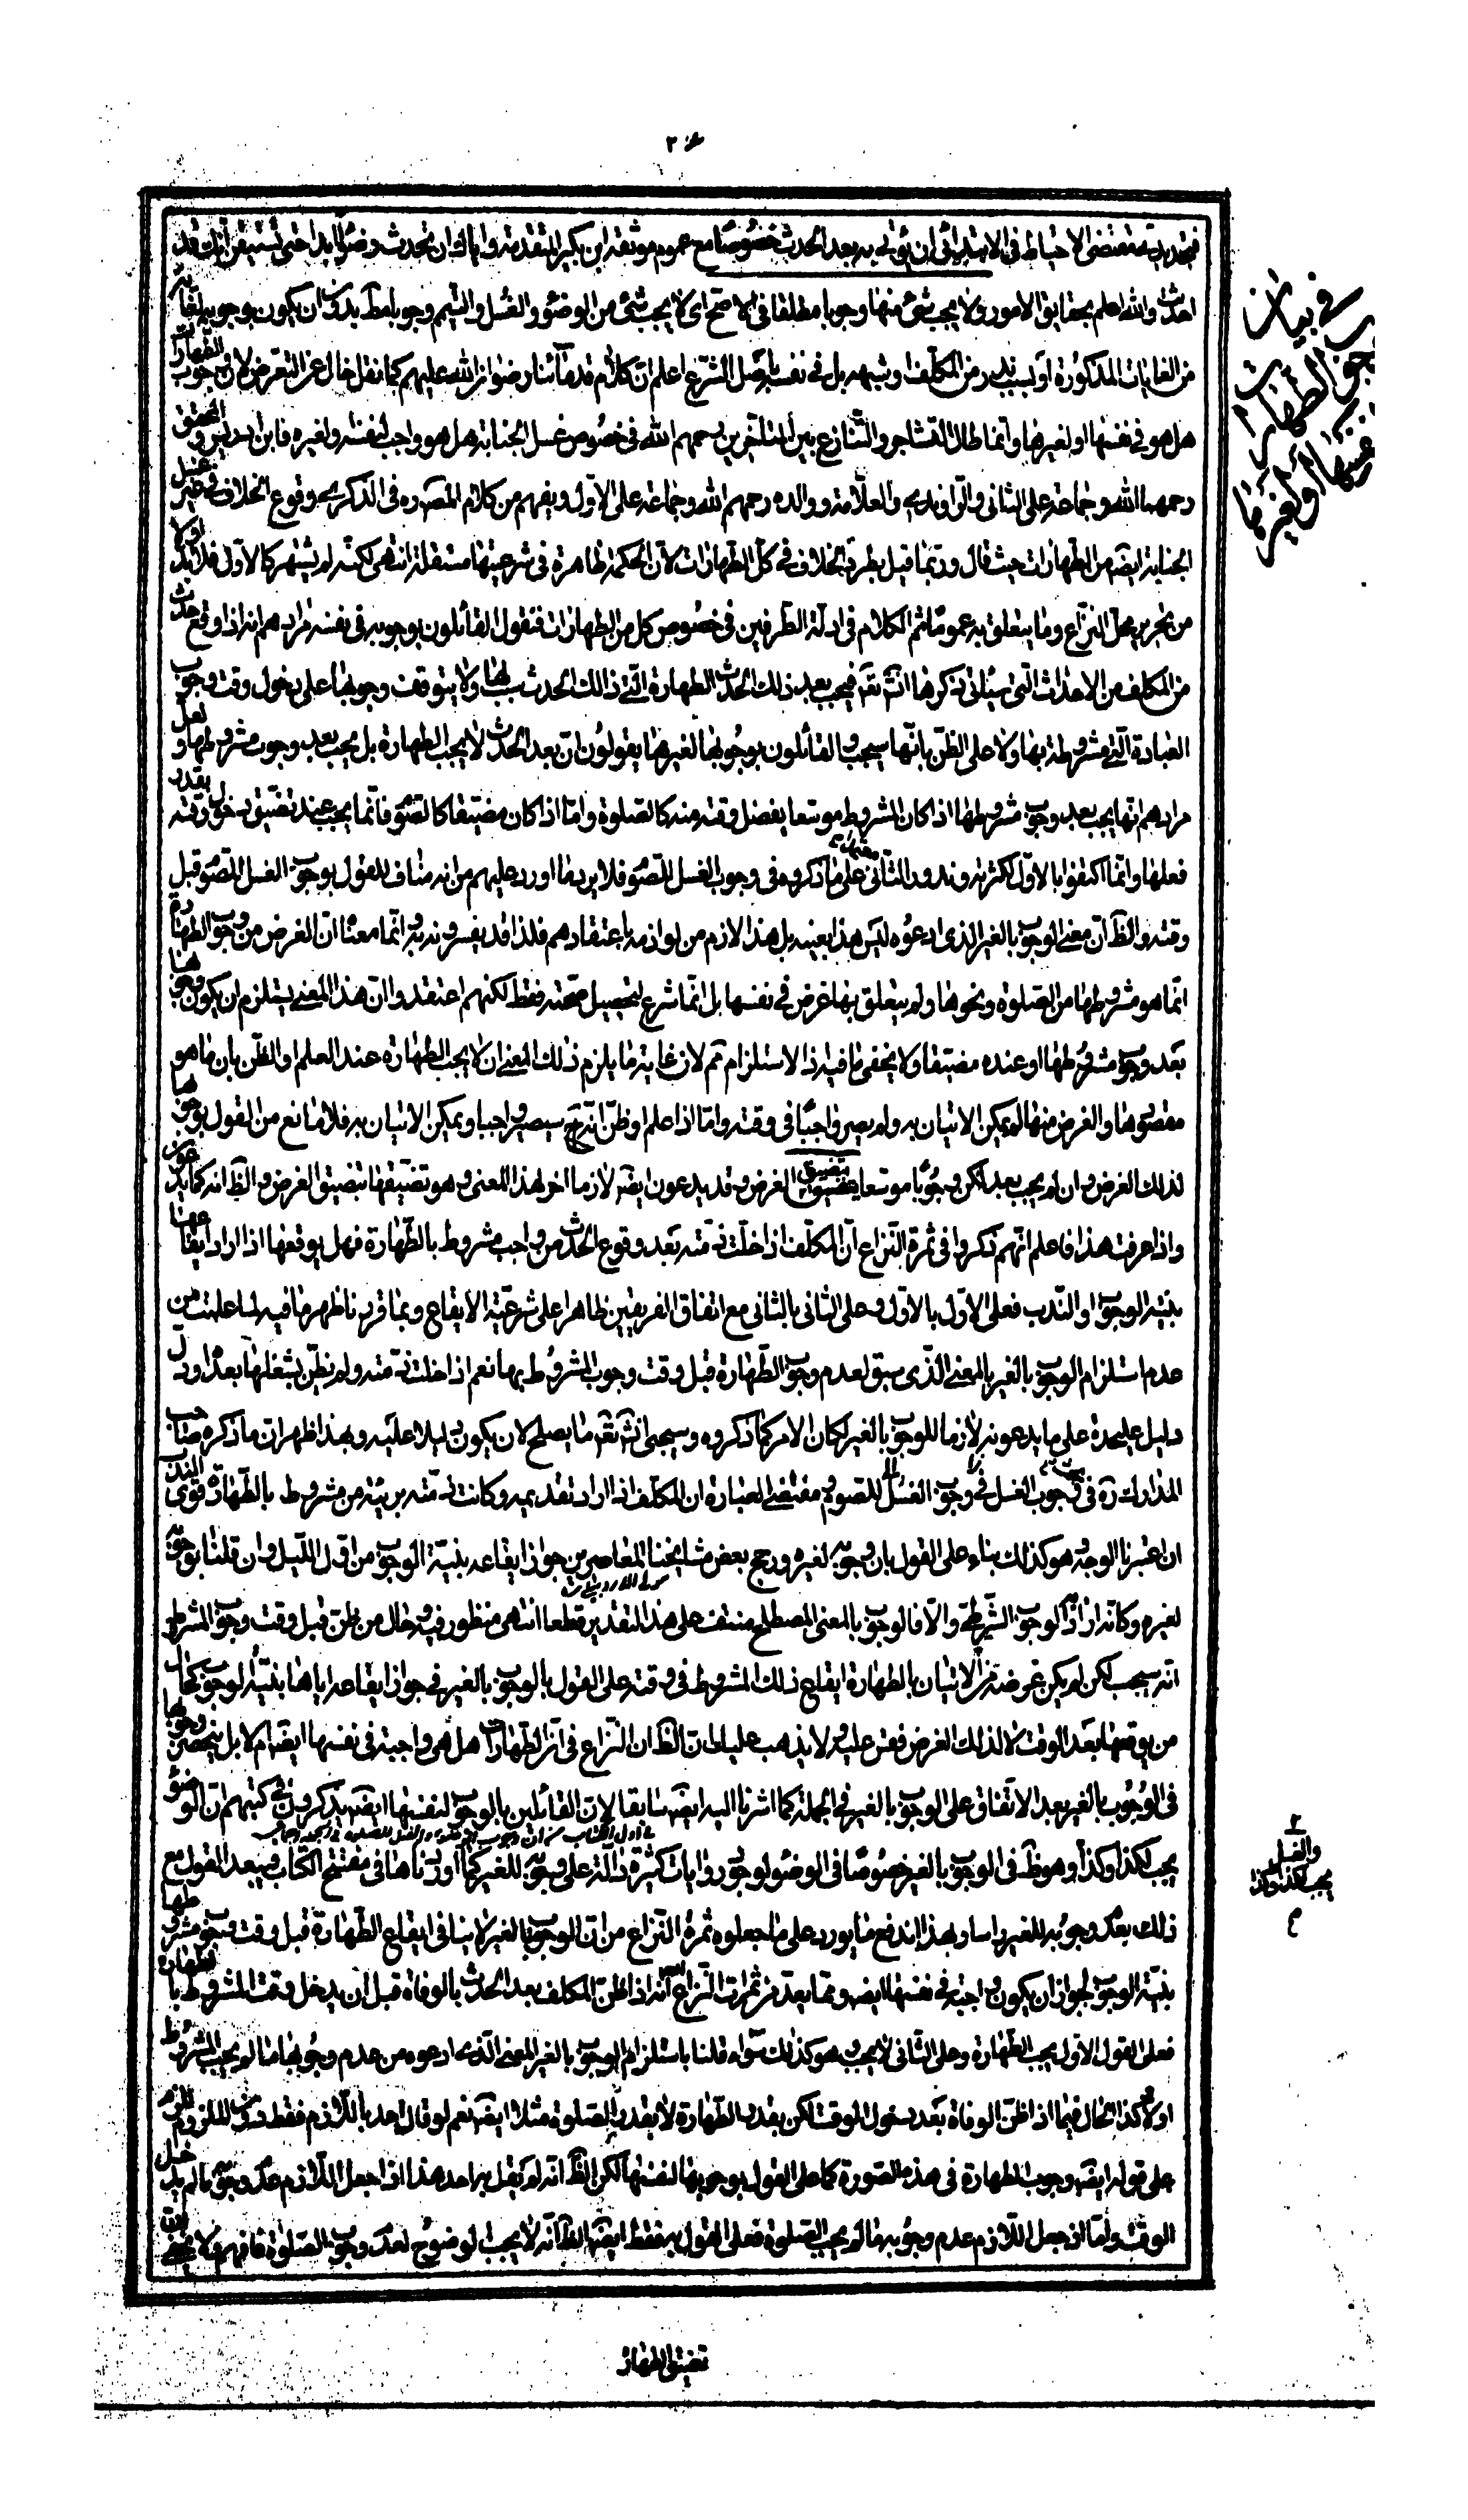 احدثت والله اعلم بحقايق الامور ولا يجب شئ منها وجوبا مطلقا في الاصح اى لا يجب شئ من الوضوء والغسل والتيمم وجوبا مطلقا بدون ان يكون وجوبه لغاية
من الغايات المذكورة او بسبب نذر من المكلف وشبهه بل في نفسه باصل الشرع اعلم ان كلام قدمائنا رضوان الله عليهم كما نقل خال عن التعرض لان وجوب الطهارات
هل هو في نفسها او لغيرها وانما طال التشاجر والتنازع بين المتاخرين رحمهم الله في خصوص غسل الجنابة هل هو واجب لنفسه ولغيره فابن ادريس والمحقق
رحمهما الله وجماعة على الثانى والراوندى والعلامة ووالده رحمهم الله وجماعة على الاول ويفهم من كلام المص ره في الذكرى وقوع الخلاف في غير غسل
الجنابة ايضا من الطهارات حيث قال وربما قيل بطرد الخلاف في كل الطهارات لان الحكمة ظاهرة في شرعيتها مستقلة انتهى لكنه لم يشتهر كالاول فلابد اولا
من تحرير محل النزاع وما يتعلق به عموما ثم الكلام في ادلة الطرفين في خصوص كل من الطهارات فنقول القائلون بوجوبه في نفسه مرادهم انه اذا وقع حدث
من المكلف من الاحداث التى سياتى ذكرها انش تعه فيجب بعد ذلك الحدث الطهارة التى ذلك الحدث سببا لها ولا يتوقف وجوبها على دخول وقت وجوب
العبادة التى مشروطة بها ولا على الظن بانها سيجب والقائلون بوجوبها لغيرها يقولون ان بعد الحدث لا يجب الطهارة بل يجب بعد وجوب مشروطها ولعل
مرادهم انها يجب بعد وجوب مشروطها اذا كان المشروط موسعا يفضل وقته منه كالصلوة واما اذا كان مضيقا كالصوم فانما يجب عند تضيق دخول وقته بقدر
فعلها وانما اكتفوا بالاول لكثرته وندور الثانى على ما ذكروه في وجوب الغسل للصوم فلا يرد ما اورد عليهم من انه مناف للقول بوجوب الغسل للصوم قبل
وقته والظ ان معنى الوجوب بالغير الذى ادعوه ليس هذا بعينه بل هذا لازم من لوازمه باعتقادهم فلذا قد يفسرونه به وانما معناه ان الغرض من وجوب الطهارة
انما هو مشروطها من الصلوة ونحوها ولم يتعلق بها غرض في نفسها بل انما شرع لتحصيل صحته فقط لكنهم اعتقدوا ان هذا المعنى يستلزم ان يكون وجوبها
بعد وجوب مشروطها او عنده مضيقا ولا يخفى ما فيه اذ الاستلزام مم لان غاية ما يلزم ذلك المعنى ان لا يجب الطهارة عند العلم او الظن بان ما هو
مقصودها والغرض منها لم يمكن الاتيان به ولم يصر واجبا في وقته واما اذا علم او ظن انه سيصير واجبا ويمكن الاتيان به فلا مانع من القول بوجوبها
لذلك الغرض وان لم يجب بعد لكن وجوبا موسعا يتضيق بتضيق الغرض وقد يدعون ايضا لازما اخر لهذا المعنى وهو تضيقها بتضيق الغرض والظ انه كما
واذا عرفت هذا فاعلم انهم ذكروا في ثمرة النزاع ان المكلف اذا خلت ذمته بعد وقوع الحدث من واجب مشروط بالطهارة فهل يوقعها اذا اراد ايقاعها
بنية الوجوب او الندب فعلى الاول بالاول وعلى الثانى بالثانى مع اتفاق الفريقين ظاهرا على شرعية الايقاع وبما قررنا ظهر ما فيه لما علمت من
عدم استلزام الوجوب بالغير بالمعنى الذى سبق لعدم وجوب الطهارة قبل وقت وجوب المشروط بها نعم اذا خلت ذمته ولم يظن بشغلها بعد او دل
دليل عليحدة على ما يدعونه لازما للوجوب بالغير لكان الامر كما ذكروه وسيجئ انش تعه ما يصلح لان يكون دليلا عليه وبهذا ظهر ان ما ذكره صاحب
المدارك ره في وجوب الغسل للصوم ومقتضى العبارة ان المكلف اذا اراد تقديمه وكانت ذمته بريئة من مشروط بالطهارة نوى الندب
ان اعتبرنا الوجه وهو كذلك بناء على القول بان وجوبه لغيره ورجح بعض مشايخنا المعاصرين جواز ايقاعه بنية الوجوب من اول الليل وان قلنا بوجوبه
لغيره وكانه اراد بالوجوب الشرطى والا فالوجوب بالمعنى المصطلح منتف على هذا التقدير قطعا انتهى منظور فيه وحال من ظن قبل وقت وجوب المشروط
انه سيجب لكن لم يكن غرضه من الاتيان بالطهارة ايقاع ذلك المشروط في وقته على القول بالوجوب بالغير في جواز ايقاعه اياها بنية الوجوب كحال
من يوقعها بعد الوقت لا لذلك الغرض فقس عليه ولا يذهب عليك ان الظ ان النزاع في ان الطهارات هل هى واجبة في نفسها ايضا ام لا بل ينحصر وجوبها
في الوجوب بالغير بعد الاتفاق على الوجوب بالغير في الجملة كما اشرنا اليه ايضا سابقا لان القائلين بالوجوب لنفسها ايضا يذكرون في كتبهم ان الوضوء
يجب لكذا وكذا وهو ظ في الوجوب بالغير خصوصا في الوضوء لوجود روايات كثيرة دالة على وجوبه للغير كما اوردناها في مفتتح الكتاب فيبعد القول مع
ذلك بعدم وجوبه للغير راسا وبهذا اندفع ما يورد على ما جعلوه ثمرة النزاع من ان الوجوب بالغير لا ينافى ايقاع الطهارة قبل وقت وجوب مشروطها
بنية الوجوب لجواز ان يكون واجبة في نفسها ايضا ومما يعد من ثمرات النزاع انه اذا ظن المكلف بعد الحدث بالوفاة قبل ان يدخل وقت المشروط بالطهارة
فعلى القول الاول يجب الطهارة وعلى الثانى لا يجب وهو كذلك سواء قلنا باستلزام الوجوب بالغير المعنى الذى ادعوه من عدم وجوبها ما لم يجب المشروط
او لا وكذا الحال فيما اذا ظن الوفاة بعد دخول الوقت لكن بقدر الطهارة لا بقدر الصلوة مثلا ايضا نعم لو قال احد باللازم فقط دون الملزوم
على قوله ايضا وجوب الطهارة في هذه الصورة كما على القول بوجوبها لنفسها لكن الظ انه لم يقل به احد هذا اذا جعل اللازم عدم وجوبها ما لم يدخل
الوقت واما اذ جعل اللازم عدم وجوبها ما لم يجب الصلوة فعلى القول به فقط ايضا الظ انه لا يجب الوضوء ح لعدم وجوب الصلوة فافهم ولا يخفى
والغسل
يجب لكذا وكذا